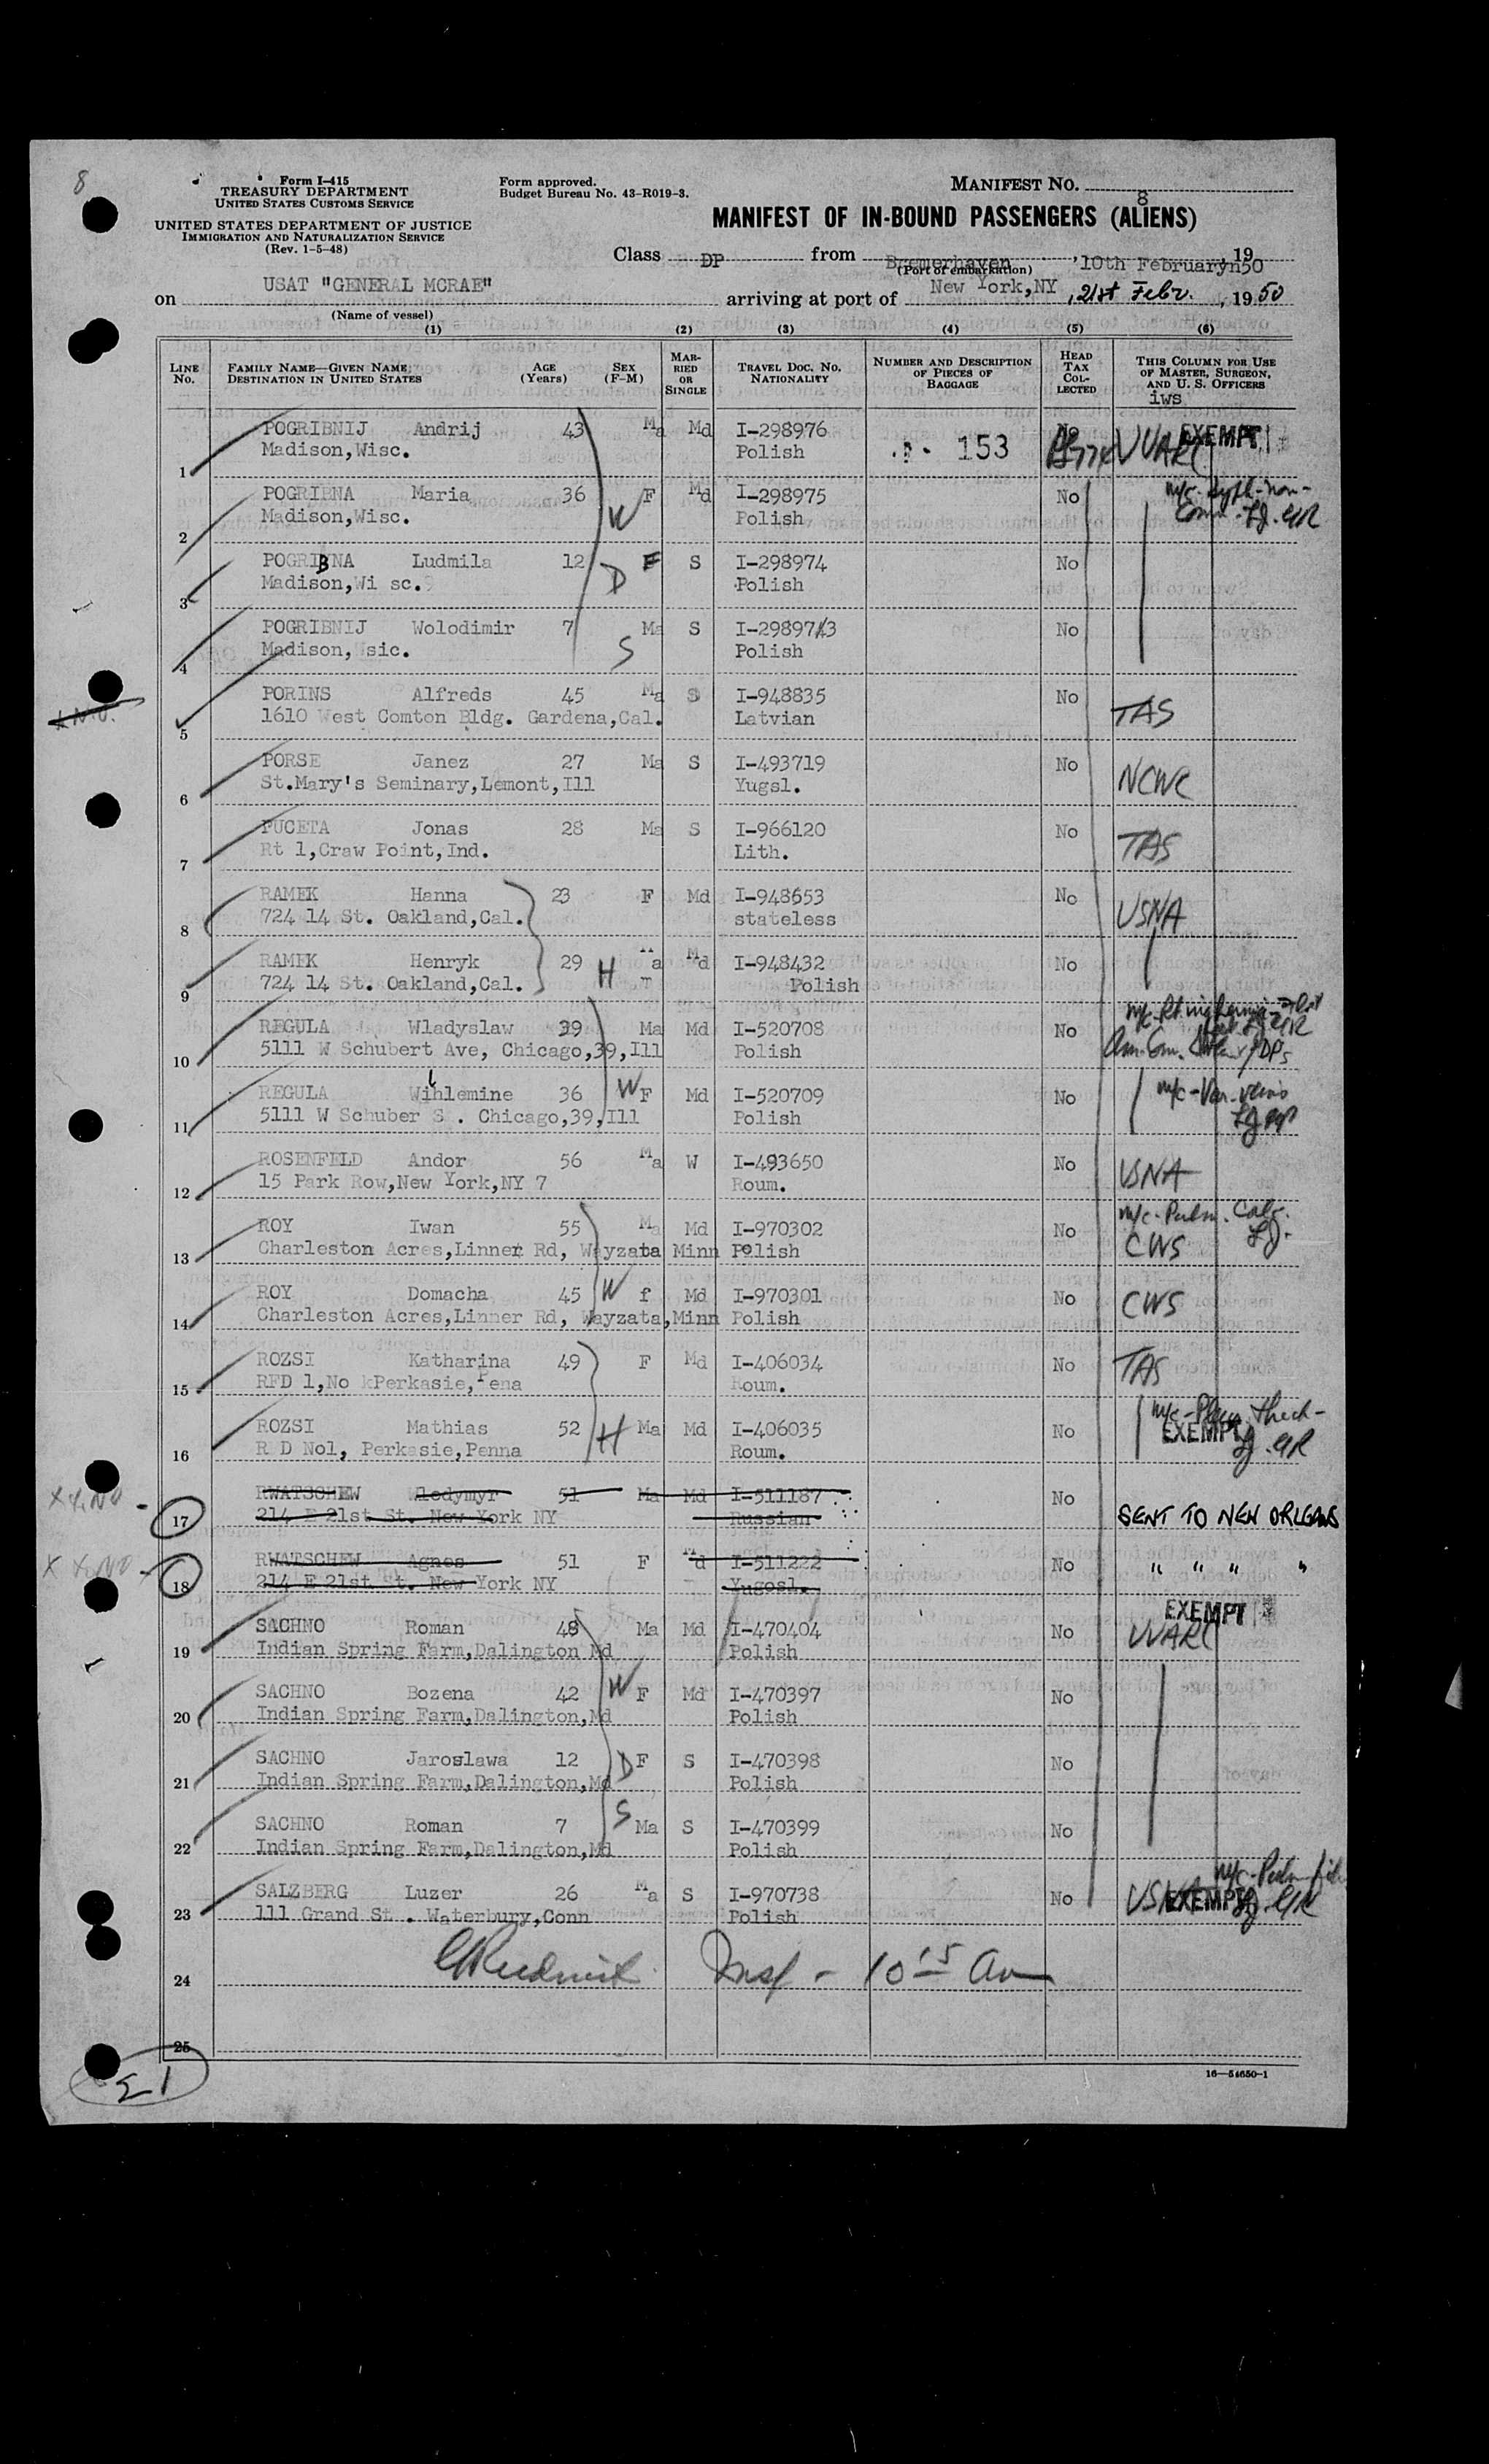 8
Form I-415
TREASURY DEPARTMENT
UNITED STATES CUSTOMS SERVICE
UNITED STATES DEPARTMENT OF JUSTICE
IMMIGRATION AND NATURALIZATION SERVICE
(Rev. 1-5-48)
Form approved.
Budget Bureau No. 43-R019-3.
MANIFEST NO. 8
MANIFEST OF IN-BOUND PASSENGERS (ALIENS)
Class DP from Bremerhaven, 10th February 1950
(Port of embarkation)
on USAT "GENERAL MCRAE" arriving at port of New York,NY, 21st Febr., 1950
(Name of vessel)
(1) (2) (3) (4) (5) (6)
LINE No. FAMILY NAME—GIVEN NAME DESTINATION IN UNITED STATES AGE (Years) SEX (F-M) MARRIED OR SINGLE TRAVEL DOC. NO. NATIONALITY NUMBER AND DESCRIPTION OF PIECES OF BAGGAGE HEAD TAX COLLECTED THIS COLUMN FOR USE OF MASTER, SURGEON, AND U. S. OFFICERS
iws
1 POGRIBNIJ Andrij 43 Ma Md I-298976 153 No EXEMPT
Madison,Wisc. Polish
2 POGRIBNA Maria 36 W F Md I-298975 No
Madison,Wisc. Polish
3 POGRIBNA Ludmila 12 D F S I-298974 No
Madison,Wi sc. Polish
4 POGRIBNIJ Wolodimir 7 S Ma S I-298973 No
Madison, sic. Polish
5 PORINS Alfreds 45 Ma S I-948835 No TAS
1610 West Comton Bldg. Gardena,Cal. Latvian
6 PORSE Janez 27 Ma S I-493719 No NCWC
St.Mary's Seminary,Lemont,Ill Yugsl.
7 PUCETA Jonas 28 Ma S I-966120 No TAS
Rt 1,Craw Point,Ind. Lith.
8 RAMEK Hanna 23 F Md I-948653 No USNA
724 14 St. Oakland,Cal. stateless
9 RAMEK Henryk 29 H Ma Md I-948432 No
724 14 St. Oakland,Cal. Polish
10 REGULA Wladyslaw 39 Ma Md I-520708 No
5111 W Schubert Ave, Chicago,39,Ill Polish
11 REGULA Wihlemine 36 W F Md I-520709 No
5111 W Schuber S . Chicago,39,Ill Polish
12 ROSENFELD Andor 56 Ma W I-493650 No USNA
15 Park Row,New York,NY 7 Roum.
13 ROY Iwan 55 Ma Md I-970302 No CWS
Charleston Acres,Linner Rd, Wayzata Minn Polish
14 ROY Domacha 45 W f Md I-970301 No CWS
Charleston Acres,Linner Rd, Wayzata,Minn Polish
15 ROZSI Katharina 49 F Md I-406034 No TAS
RFD 1,No kPerkasie,Pena Roum.
16 ROZSI Mathias 52 H Ma Md I-406035 No EXEMPT
R D No1, Perkasie,Penna Roum.
17 RWATSCHEW Wlodymyr 51 Ma Md I-511187 No SENT TO NEW ORLEANS
214 E 21st St. New York NY Russian
18 RWATSCHEW Agnes 51 F Md I-511222 No " " " "
214 E 21st t. New York NY Yugosl.
19 SACHNO Roman 48 Ma Md I-470404 No EXEMPT
Indian Spring Farm,Dalington Md Polish
20 SACHNO Bozena 42 W F Md I-470397 No
Indian Spring Farm,Dalington,Md Polish
21 SACHNO Jaroslawa 12 D F S I-470398 No
Indian Spring Farm,Dalington,Md Polish
22 SACHNO Roman 7 S Ma S I-470399 No
Indian Spring Farm,Dalington,Md Polish
23 SALZBERG Luzer 26 Ma S I-970738 No USNA EXEMPT
111 Grand St . Waterbury,Conn Polish
24 Insp - 10 15 am
25
16—54650-1